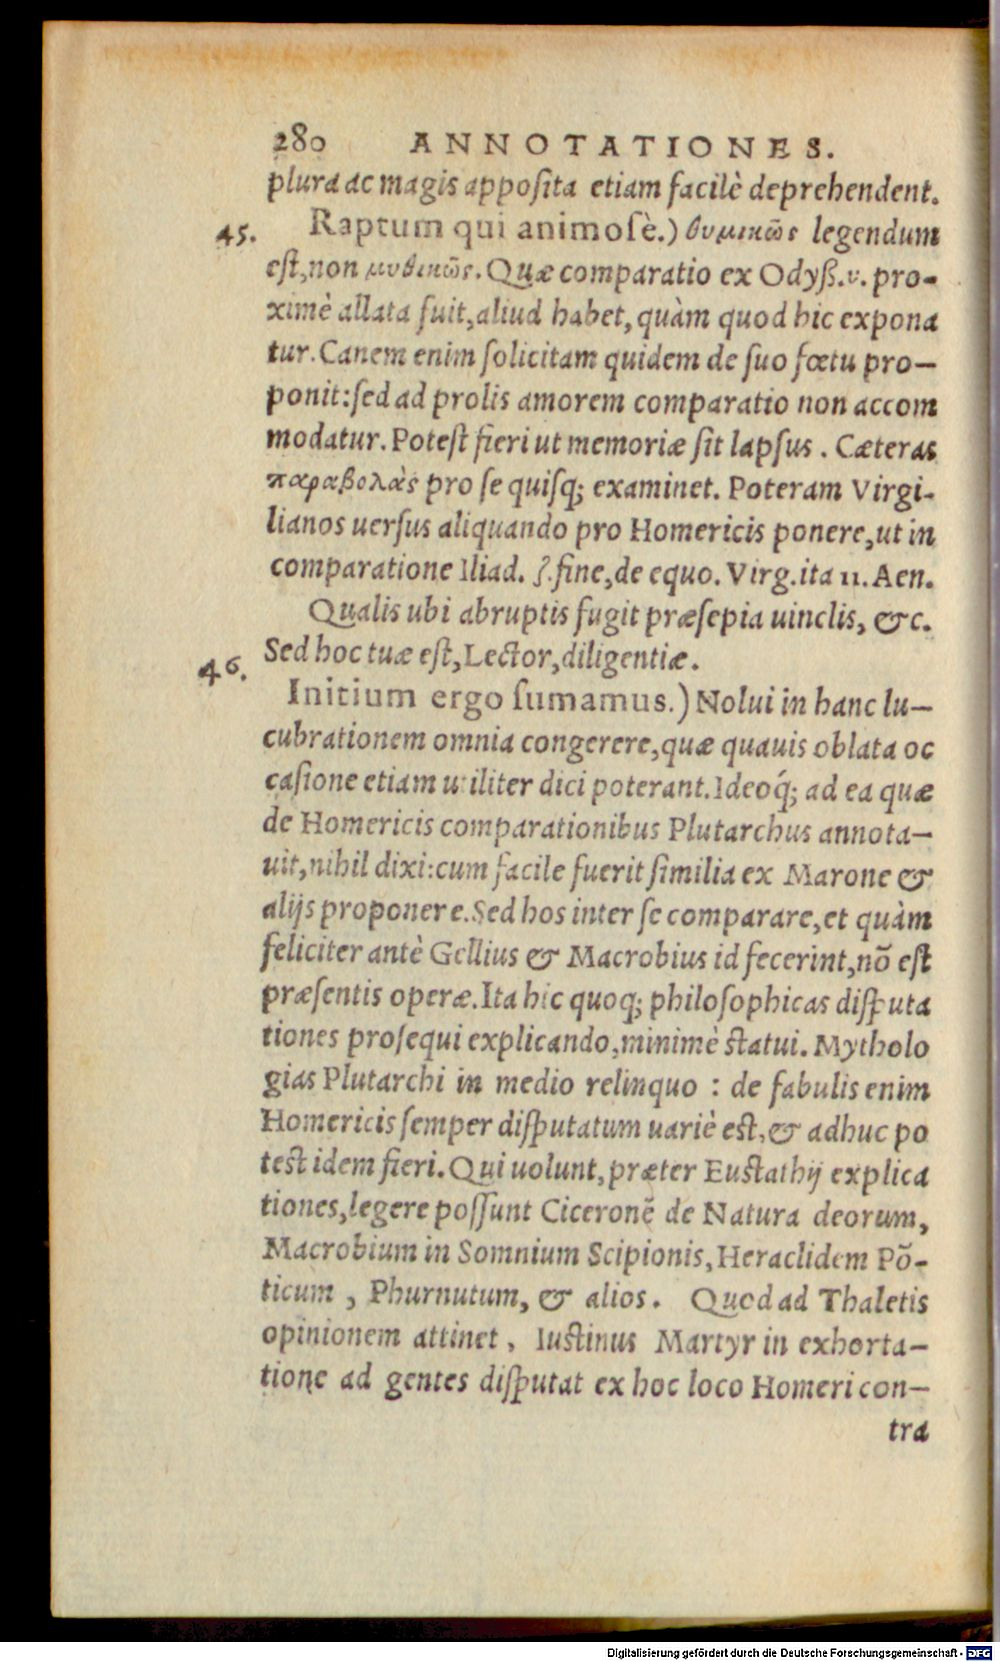 280 ANNOTATIONES.
plura ac magis apposita etiam facilè deprehendent.
45. Raptum qui animosè.) θυμικῶς legendum
est, non μυθικῶς. Quæ comparatio ex Odyß. υ. pro-
ximè allata fuit, aliud habet, quàm quod hic expona
tur. Canem enim solicitam quidem de suo fœtu pro-
ponit: sed ad prolis amorem comparatio non accom
modatur. Potest fieri ut memoriæ sit lapsus. Cæteras
παραβολὰς pro se quisq; examinet. Poteram Virgi-
lianos uersus aliquando pro Homericis ponere, ut in
comparatione Iliad. ζ. fine, de equo. Virg. ita 11. Aen.
Qualis ubi abruptis fugit præsepia uinclis, &c.
Sed hoc tuæ est, Lector, diligentiæ.
46. Initium ergo sumamus.) Nolui in hanc lu-
cubrationem omnia congerere, quæ quauis oblata oc
casione etiam utiliter dici poterant. Ideoq́; ad ea quæ
de Homericis comparationibus Plutarchus annota-
uit, nihil dixi: cum facile fuerit similia ex Marone &
alijs proponere. Sed hos inter se comparare, et quàm
feliciter antè Gellius & Macrobius id fecerint, nō est
præsentis operæ. Ita hic quoq; philosophicas disputa
tiones prosequi explicando, minimè statui. Mytholo
gias Plutarchi in medio relinquo : de fabulis enim
Homericis semper disputatum uariè est, & adhuc po
test idem fieri. Qui uolunt, præter Eustathij explica
tiones, legere possunt Ciceronē de Natura deorum,
Macrobium in Somnium Scipionis, Heraclidem Pō-
ticum, Phurnutum, & alios. Quod ad Thaletis
opinionem attinet, Iustinus Martyr in exhorta-
tione ad gentes disputat ex hoc loco Homeri con-
tra
Digitalisierung gefördert durch die Deutsche Forschungsgemeinschaft - DFG